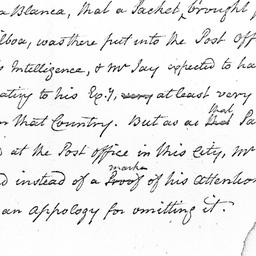 a Blanca, that a Packet, brought
lboa, was there put into the Post Off
s Intelligence, & Mr Jay expected to ha
ating to his Ex:y, very at least very
m that Country. But as a that Pa
d at the Post office in this City, Mr
d instead of a marke Proof of his attention
an Appology for omitting it.